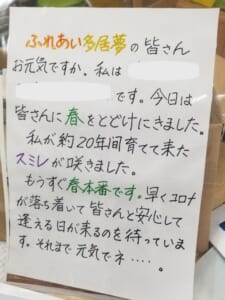 ふれあい多居夢の皆さん
お元気ですか。私は
です。今日は
皆さんに春をとどけにきました。
私が約20年間育てて来た
スミレが咲きました。
もうすぐ春本番です。早くコロナ
が落ち着いて皆さんと安心して
逢える日が来るのを待っていま
す。それまで元気でネ‥‥。